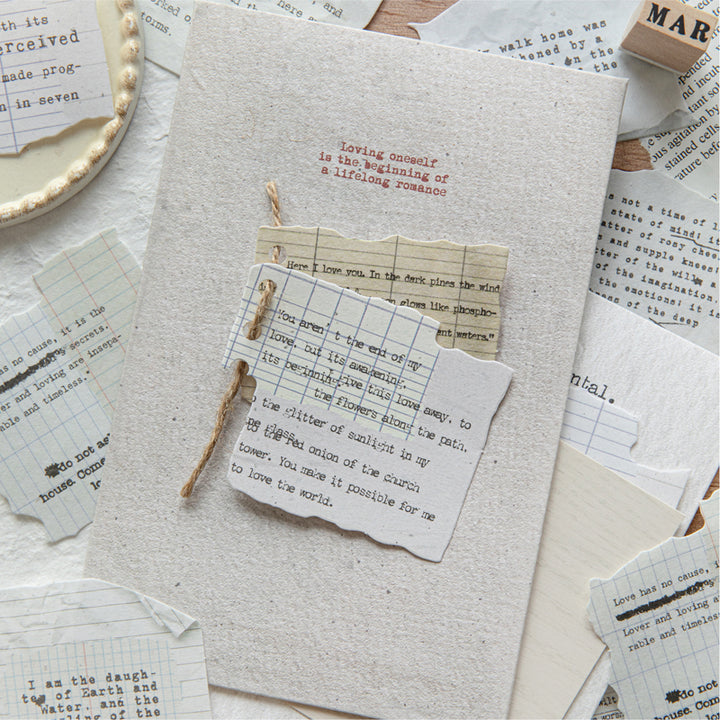 th its
erceived
made prog-
n in seven
orked o
here an
toisms.
walk home was
kened by a
on the
MAR
Loving oneself
is the beginning of
a lifelong romance
Here I love you. In the dark pines the wind
on glows like phospho-
ent waters."
You aren't the end of my
love, but its awakening,
its beginning. I give this love away, to
the flowers along the path,
the glitter of sunlight in my
to the red onion of the church
tower. You make it possible for me
to love the world.
is not a time of
state of mind; i
atter of rosy chee
and supple knees
ter of the wil
of the imagination
the emotions; it i
ss of the deep
pended
and incub
tant sol
us agitation by
stained cells
ature, before
ntal.
as no cause, it is the
secrets.
er and loving are insepa-
rable and timeless.
do not as
house. Com
Love has no cause, i
Lover and loving a
rable and timeless
do not
house. Com
I am the daugh-
ter of Earth and
Water, and the
ling of the